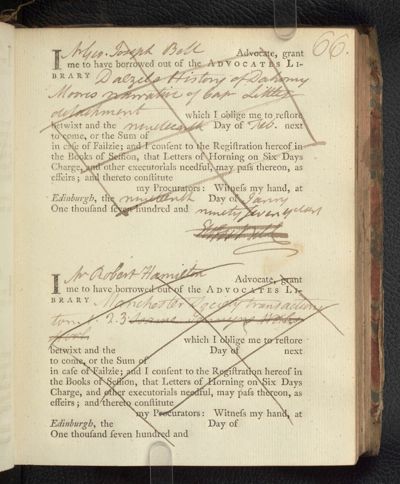 66.
I Mr Geo. Joseph Bell Advocate, grant
me to have borrowed out of the ADVOCATES LI-
BRARY Dalzels History of Dahomy
Moores narrative of Cap Littles
detachment which I oblige me to reſtore
betwixt and the nineteenth Day of Feb. next
to come, or the Sum of
in caſe of Failzie; and I conſent to the Regiſtration hereof in
the Books of Seſſion, that Letters of Horning on Six Days
Charge, and other executorials needful, may paſs thereon, as
effeirs; and thereto conſtitute
my Procurators: Witneſs my hand, at
Edinburgh, the nineteenth Day of Janry
One thouſand ſeven hundred and ninety seven years
I Mr Robert Hamilton Advocate, grant
me to have borrowed out of the ADVOCATES LI-
BRARY Manchester Society Transactions
tom 2.3
which I oblige me to reſtore
betwixt and the Day of next
to come, or the Sum of
in caſe of Failzie; and I conſent to the Regiſtration hereof in
the Books of Seſſion, that Letters of Horning on Six Days
Charge, and other executorials needful, may paſs thereon, as
effeirs; and thereto conſtitute
my Procurators: Witneſs my hand, at
Edinburgh, the Day of
One thouſand ſeven hundred and